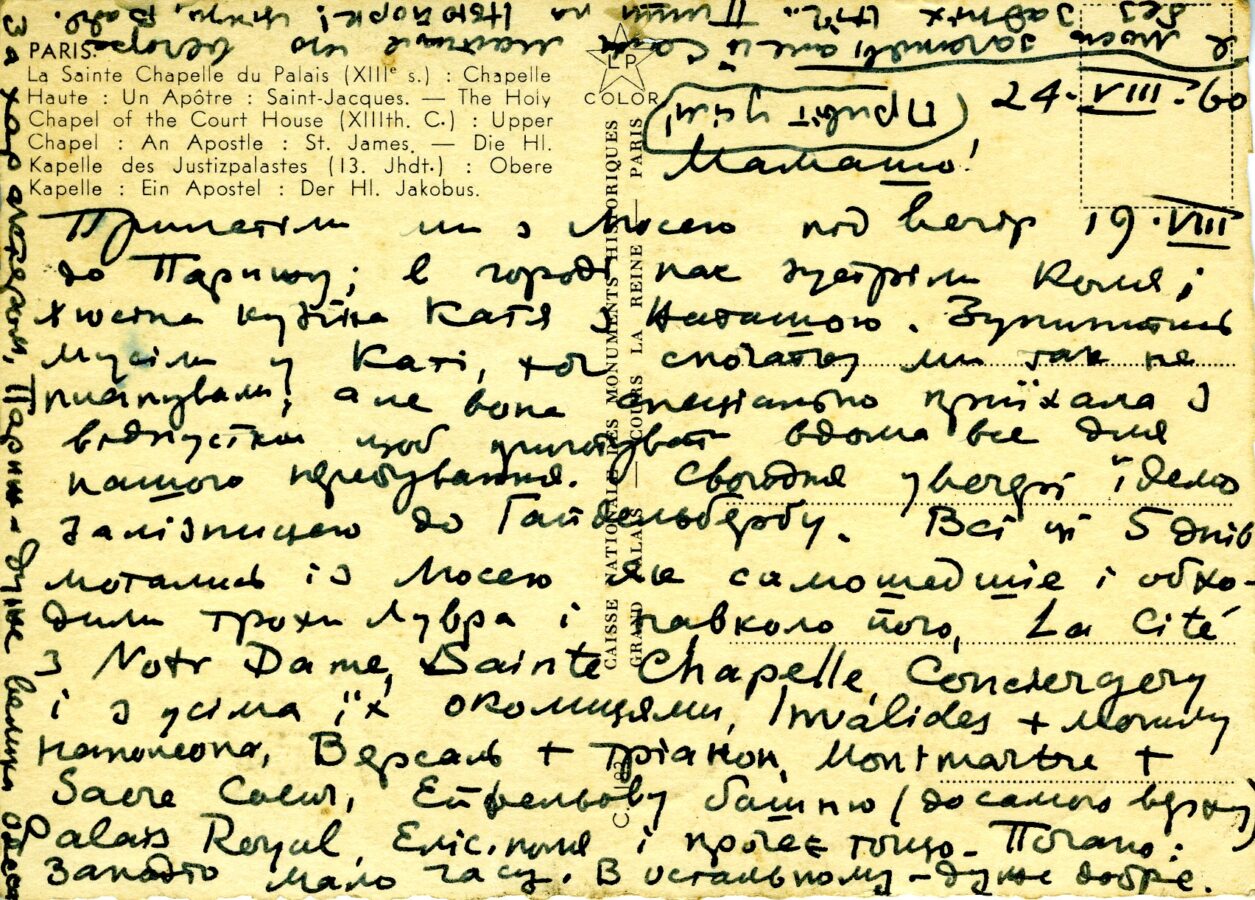 PARIS.
La Sainte Chapelle du Palais (XIIIe s.) : Chapelle
Haute : Un Apôtre : Saint-Jacques. — The Holy
Chapel of the Court House (XIIIth. C.) : Upper
Chapel : An Apostle : St. James. — Die Hl.
Kapelle des Justizpalastes (13. Jhdt.) : Obere
Kapelle : Ein Apostel : Der Hl. Jakobus.
LP
COLOR
24-VIII-60
Привіт усім!
Мамашо!
Прилетіли ми з Мосею під вечір 19-VIII
до Парижу; в городі нас зустріли Коля і
кузіна Катя з Наташою. Зупинитись
мусіли у Каті, хоч спочатку ми так не
плянували, але вона спеціально приїхала з
відпустки щоб приготувати вдома все для
нашого перебування. Свогодня увечері їдемо
залізницею до Гайдельбергу. Всі ці 5 днів
мотались із Мосею як самошедшіє і обхо-
дили трохи Лувра і навколо його, La Cité
з Notr Dame, Sainte Chapelle, Conciergery
і з усіма їх околицями, Invalides + могилу
Наполеона, Версаль + Тріанон, Montmartre +
Sacre Coeur, Ейфельову башню (до самого верху)
Palais Royal, Еліс. поля і прочеє тощо. Погано:
Занадто мало часу. В остальному - дуже добре.
За характером, Париж - дуже велика Одеса
CAISSE NATIONALE DES MONUMENTS HISTORIQUES
GRAND PALAIS — COURS LA REINE — PARIS